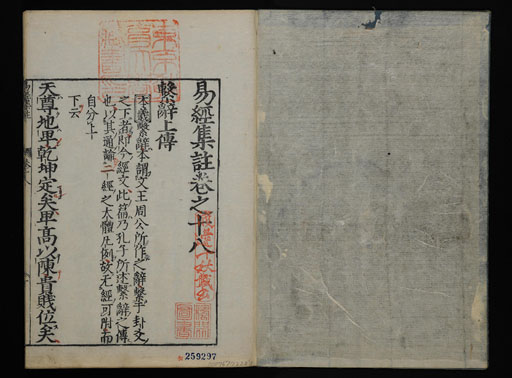 易經集註卷之十八
繫辭上傳
本義繫辭本謂文王周公所作之辭繫于卦爻
之下者即今經文此篇乃孔子所述繫辭之傳
也以其通論一經之大體凡例故无經可附而
自分上下
下云
天尊地卑乾坤定矣卑高以陳貴賤位矣
259297